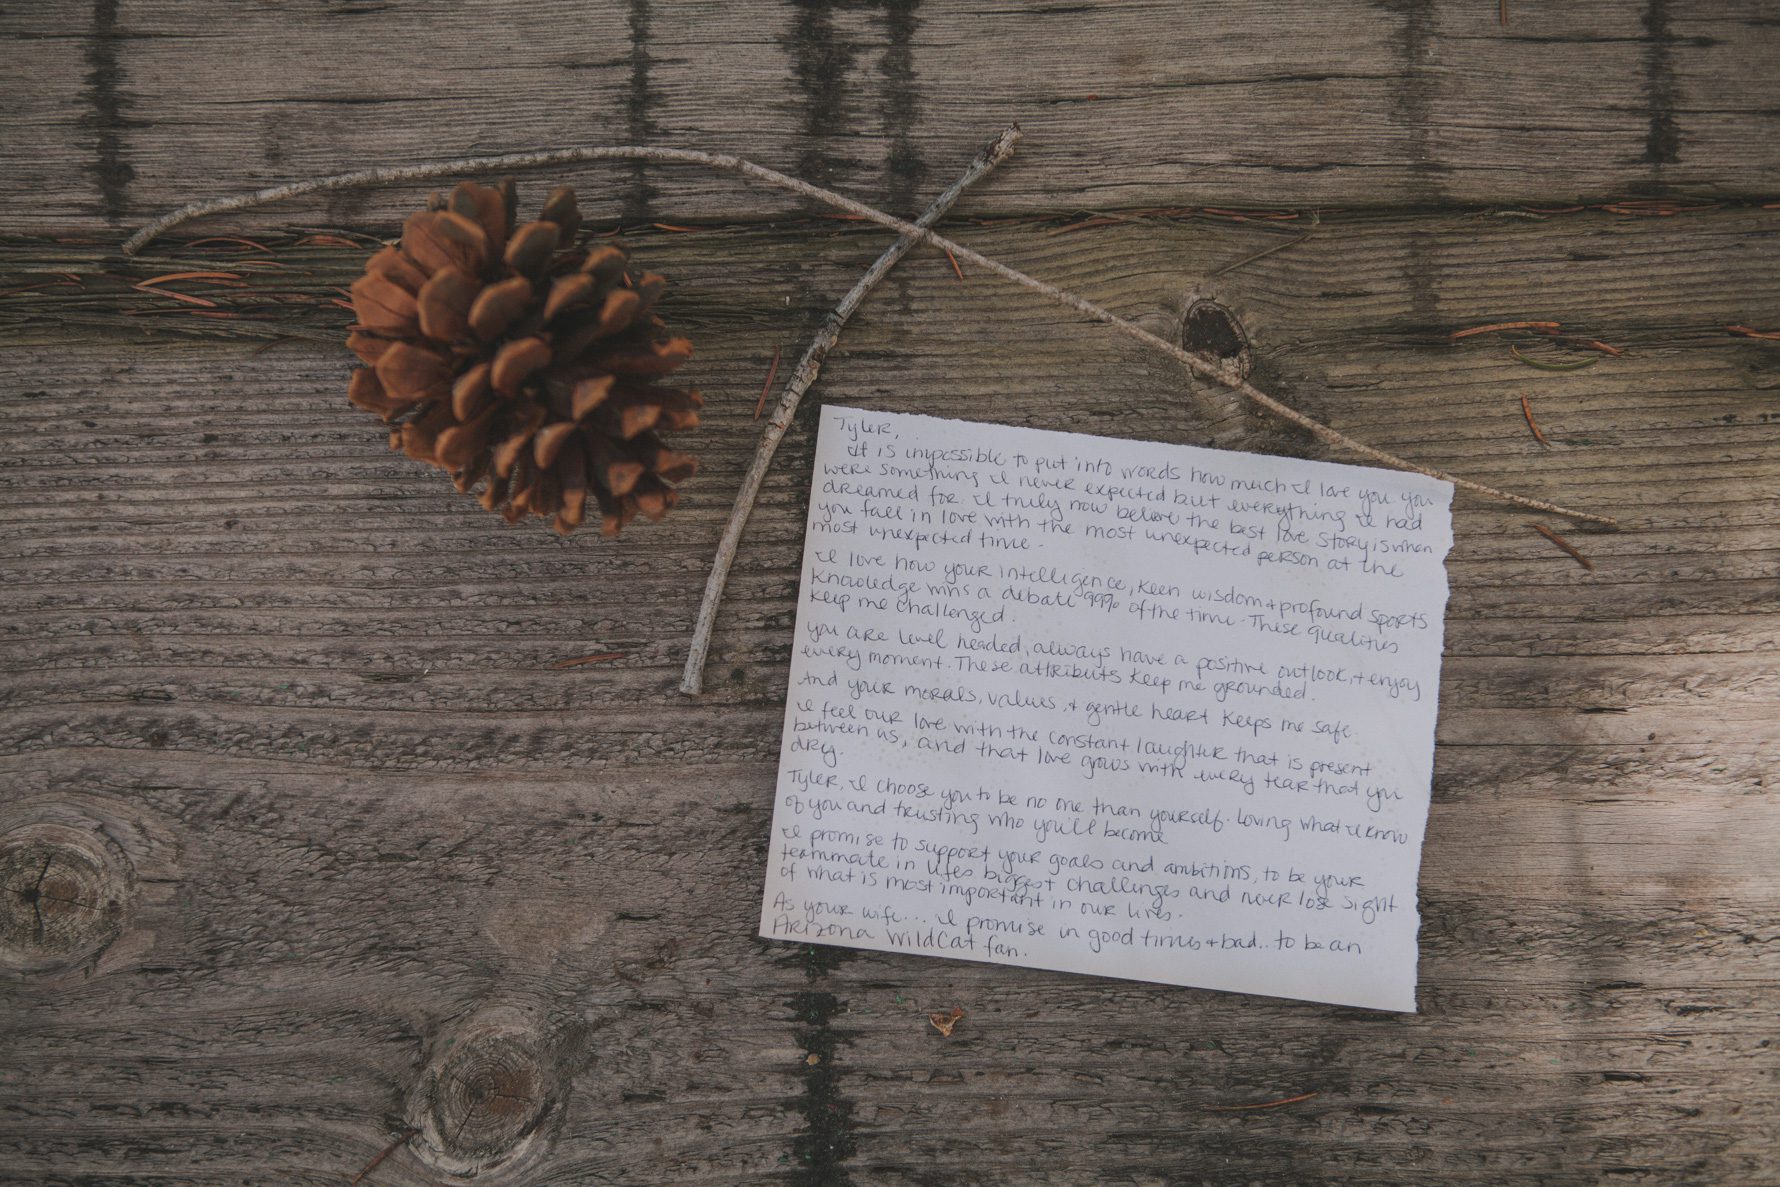 Tyler,
It is impossible to put into words how much I love you you
were something I never expected but everything I had
dreamed for. I truly now believe the best love story is when
you fall in love with the most unexpected person at the
most unexpected time.
I love how your intelligence, keen wisdom + profound sports
knowledge wins a debate 99% of the time. These qualities
keep me challenged.
you are level headed, always have a positive outlook, + enjoy
every moment. These attributs keep me grounded.
And your morals, values, + gentle heart keeps me safe.
I feel our love with the constant laughter that is present
between us, and that love grows with every tear that you
dry.
Tyler, I choose you to be no one than yourself. Loving what I know
of you and trusting who you'll become
I promise to support your goals and ambitions, to be your
teammate in lifes biggest challenges and never lose sight
of what is most important in our lives.
As your wife... I promise in good times + bad.. to be an
Arizona WildCat fan.